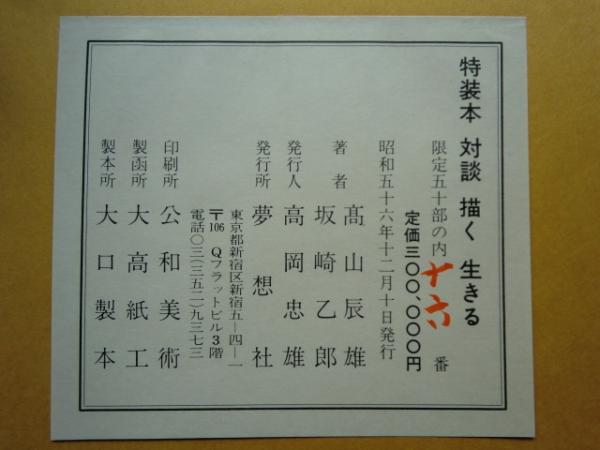 特装本 対談 描く 生きる
限定五十部の内 十六 番
定価三〇〇、〇〇〇円
昭和五十六年十二月十日発行
著者 髙山辰雄
坂崎乙郎
発行人 高岡忠雄
発行所 夢想社
東京都新宿区新宿五―四―一
〒106 Qフラットビル3階
電話〇三(三五二)九三七三
印刷所 公和美術
製函所 大高紙工
製本所 大口製本